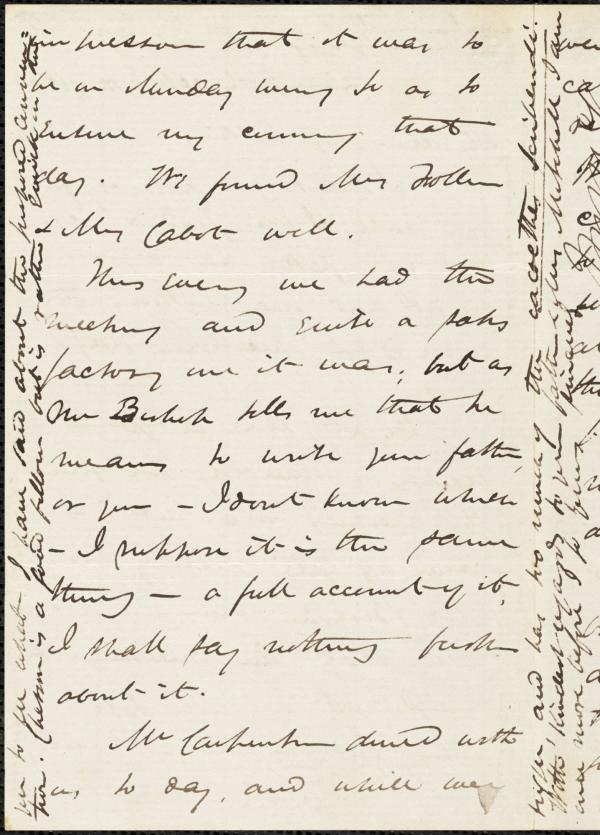 impression that it was to
be on Monday evening so as to
ensure my coming that
day. We found Mrs Follen
& Mrs Cabot well.
This evening we had the
meeting and quite a satis
factory one it was, but as
Mr Bishop tells me that he
means to write your father
or you - I don't know which
- I suppose it is the same
thing - a full account of it,
I shall say nothing further
about it.
Mr Carpenter dined with
us to day, and while were
you to see what I have said about the proposed conven=
tion. Chesson is a good fellow but is rather
and has too much of the cacoethes scribendi.
With kindest regards to your father & Miss Mitchell I am
and more before I go